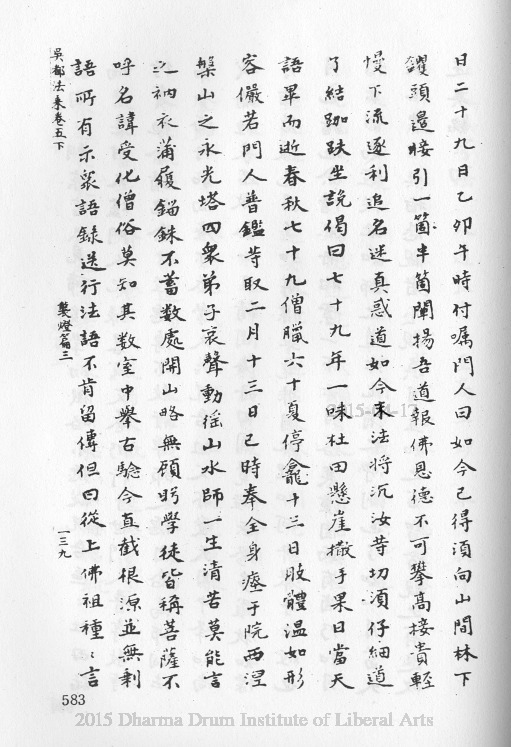 日二十九日乙卯午時付囑門人曰如今已得須向山間林下
钁頭邊接引一箇半箇闡揚吾道報佛恩德不可攀高接貴輕
慢下流逐利追名迷真惑道如今末法將沉汝䒭切須仔細道
了結跏趺坐說偈曰七十九年一味杜田懸崖撒手杲日當天
語畢而逝春秋七十九僧臘六十夏停龕十三日肢體温如形
容儼若門人普鑑䒭取二月十三日巳時奉全身瘞于院西涅
槃山之永光塔四衆弟子哀聲動徭山水師一生清苦莫能言
之衲衣蒲履錙銖不蓄数處開山略無顧盻學徒皆稱菩薩不
呼名諱受化僧俗莫知其数室中舉古驗今直截根源並無剩
語所有示衆語錄送行法語不肯留傳但曰從上佛祖種〻言
吳都法乘卷五下
襲燈篇三
一三九
583
2015-04-17
2015 Dharma Drum Institute of Liberal Arts